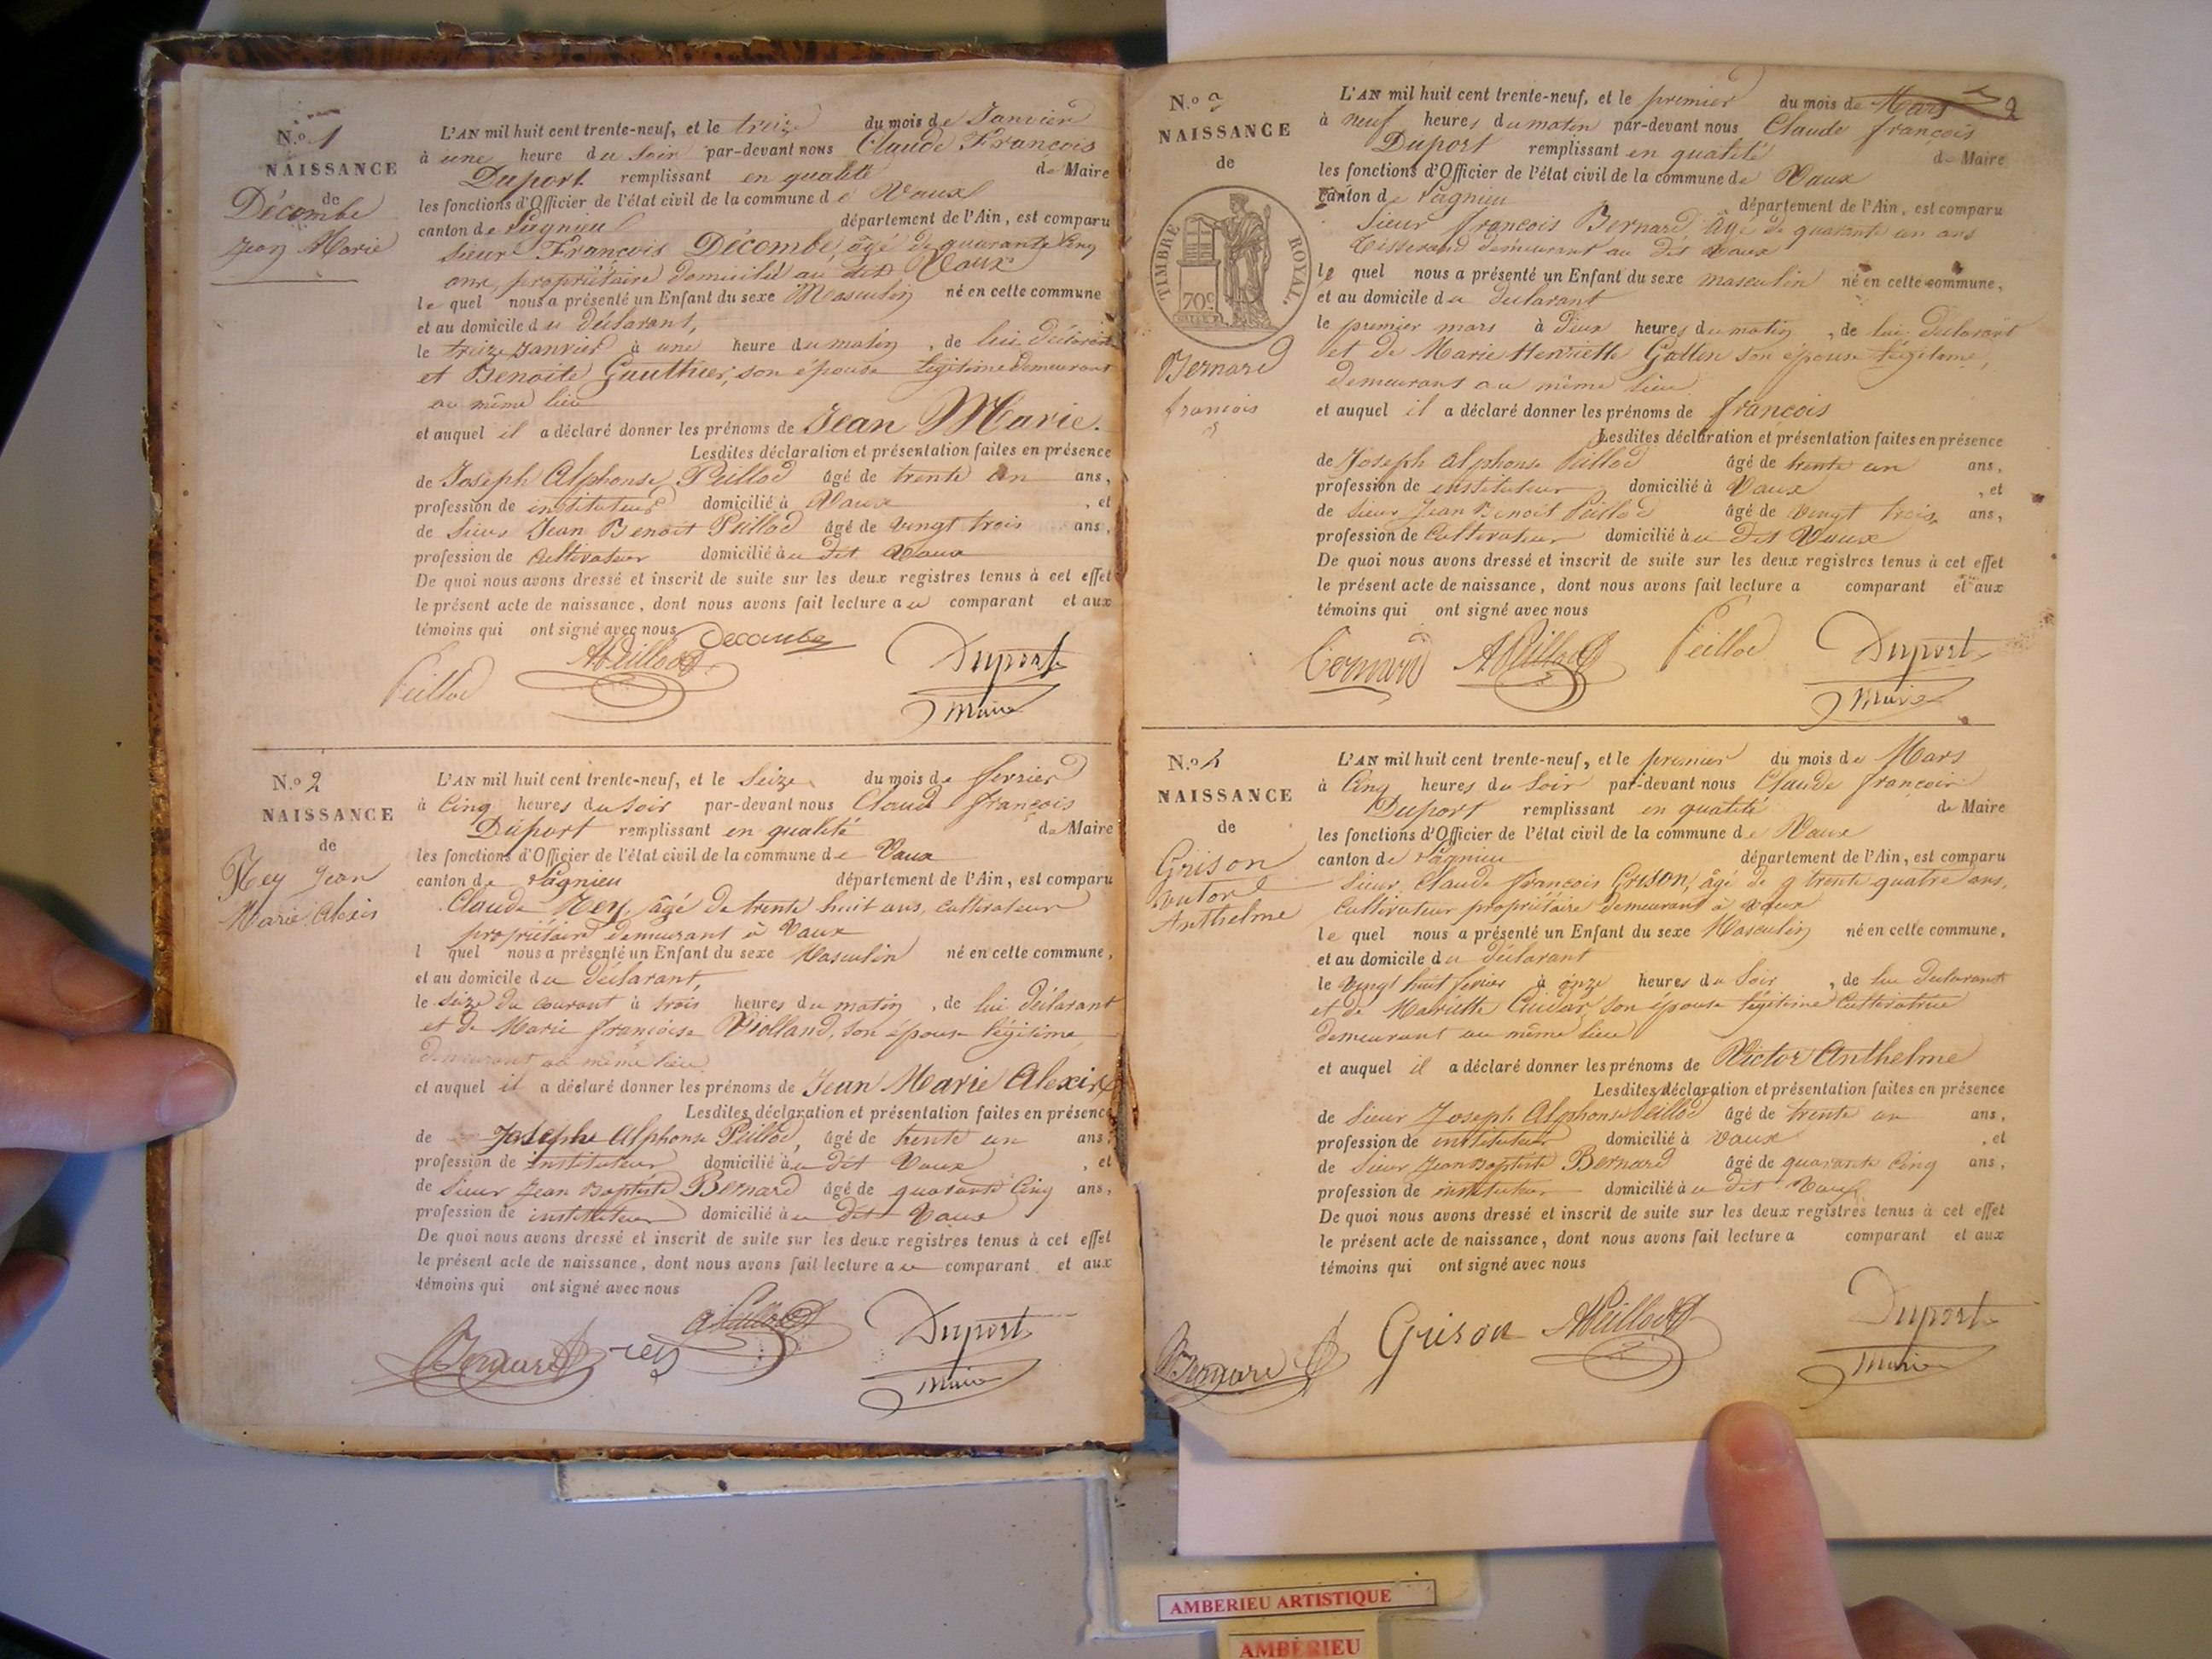 N.º 1
NAISSANCE
de
Décombe
Jean Marie
L'AN mil huit cent trente-neuf, et le treize du mois de Janvier
à une heure du soir par-devant nous Claude François
Duport remplissant en qualité de Maire
les fonctions d'Officier de l'état civil de la commune de Vaux
canton de Lagnieu département de l'Ain, est comparu
Sieur François Décombe, âgé de quarante cinq
ans, propriétaire domicilié au dit Vaux
le quel nous a présenté un Enfant du sexe Masculin né en cette commune
et au domicile du déclarant,
le treize Janvier à une heure du matin, de lui déclarant
et Benoite Gauthier, son épouse légitime demeurant
au même lieu
et auquel il a déclaré donner les prénoms de Jean Marie.
Lesdites déclaration et présentation faites en présence
de Joseph Alphonse Peillod âgé de trente un ans,
profession de instituteur domicilié à Vaux, et
de Sieur Jean Benoit Peillod âgé de vingt trois ans,
profession de cultivateur domicilié au dit Vaux
De quoi nous avons dressé et inscrit de suite sur les deux registres tenus à cet effet
le présent acte de naissance, dont nous avons fait lecture au comparant et aux
témoins qui ont signé avec nous
Decombe
Peillod APeillod Duport
Maire
N.º 2
NAISSANCE
de
Rey Jean
Marie Alexis
L'AN mil huit cent trente-neuf, et le Seize du mois de fevrier
à Cinq heures du soir par-devant nous Claude françois
Duport remplissant en qualité de Maire
les fonctions d'Officier de l'état civil de la commune de Vaux
canton de Lagnieu département de l'Ain, est comparu
Claude Rey, âgé de trente huit ans, cultivateur
propriétaire demeurant à Vaux
l quel nous a présenté un Enfant du sexe Masculin né en cette commune,
et au domicile du déclarant,
le seize du courant à trois heures du matin, de lui déclarant
et de Marie françoise Violland, son épouse légitime
demeurant au même lieu
et auquel il a déclaré donner les prénoms de Jean Marie Alexis
Lesdites déclaration et présentation faites en présence
de Joseph Alphonse Peillod, âgé de trente un ans,
profession de instituteur domicilié au dit Vaux, et
de Sieur Jean Baptiste Bernard âgé de quarante cinq ans,
profession de instituteur domicilié au dit Vaux
De quoi nous avons dressé et inscrit de suite sur les deux registres tenus à cet effet
le présent acte de naissance, dont nous avons fait lecture au comparant et aux
témoins qui ont signé avec nous
Bernard rey APeillod Duport
Maire
2
N.º 3
NAISSANCE
de
TIMBRE ROYAL.
70c
Bernard
francois
L'AN mil huit cent trente-neuf, et le premier du mois de Mars
à neuf heures du matin par-devant nous Claude françois
Duport remplissant en qualité de Maire
les fonctions d'Officier de l'état civil de la commune de Vaux
canton de Lagnieu département de l'Ain, est comparu
Sieur francois Bernard âgé de quarante un ans
tisserand demeurant au dit Vaux
le quel nous a présenté un Enfant du sexe masculin né en cette commune,
et au domicile du declarant
le premier mars à deux heures du matin, de lui declarant
et de Marie Henriette Gotten son épouse légitime,
demeurant au même lieu
et auquel il a déclaré donner les prénoms de françois
Lesdites déclaration et présentation faites en présence
de Joseph Alphonse Peillod âgé de trente un ans,
profession de instituteur domicilié à Vaux, et
de Sieur Jean Benoit Peillod âgé de vingt trois ans,
profession de Cultivateur domicilié au dit Vaux
De quoi nous avons dressé et inscrit de suite sur les deux registres tenus à cet effet
le présent acte de naissance, dont nous avons fait lecture a comparant et aux
témoins qui ont signé avec nous
Bernard APeillod Peillod Duport
Maire
N.º 4
NAISSANCE
de
Grison
Victor
Anthelme
L'AN mil huit cent trente-neuf, et le premier du mois de Mars
à Cinq heures du soir par-devant nous Claude françois
Duport remplissant en qualité de Maire
les fonctions d'Officier de l'état civil de la commune de Vaux
canton de Lagnieu département de l'Ain, est comparu
Sieur Claude françois Grison, âgé de trente quatre ans,
cultivateur propriétaire demeurant à Vaux
le quel nous a présenté un Enfant du sexe Masculin né en cette commune,
et au domicile du déclarant
le vingt huit fevrier à onze heures du Soir, de lui declarant
et de Mariette Cuidar, son épouse légitime Cultivatrice
demeurant au même lieu
et auquel il a déclaré donner les prénoms de Victor Anthelme
Lesdites déclaration et présentation faites en présence
de Sieur Joseph Alphonse Peillod âgé de trente un ans,
profession de instituteur domicilié à Vaux, et
de Sieur Jean Baptiste Bernard âgé de quarante Cinq ans,
profession de instituteur domicilié au dit Vaux
De quoi nous avons dressé et inscrit de suite sur les deux registres tenus à cet effet
le présent acte de naissance, dont nous avons fait lecture a comparant et aux
témoins qui ont signé avec nous
Bernard Grison APeillod Duport
Maire
AMBERIEU ARTISTIQUE
AMBERIEU